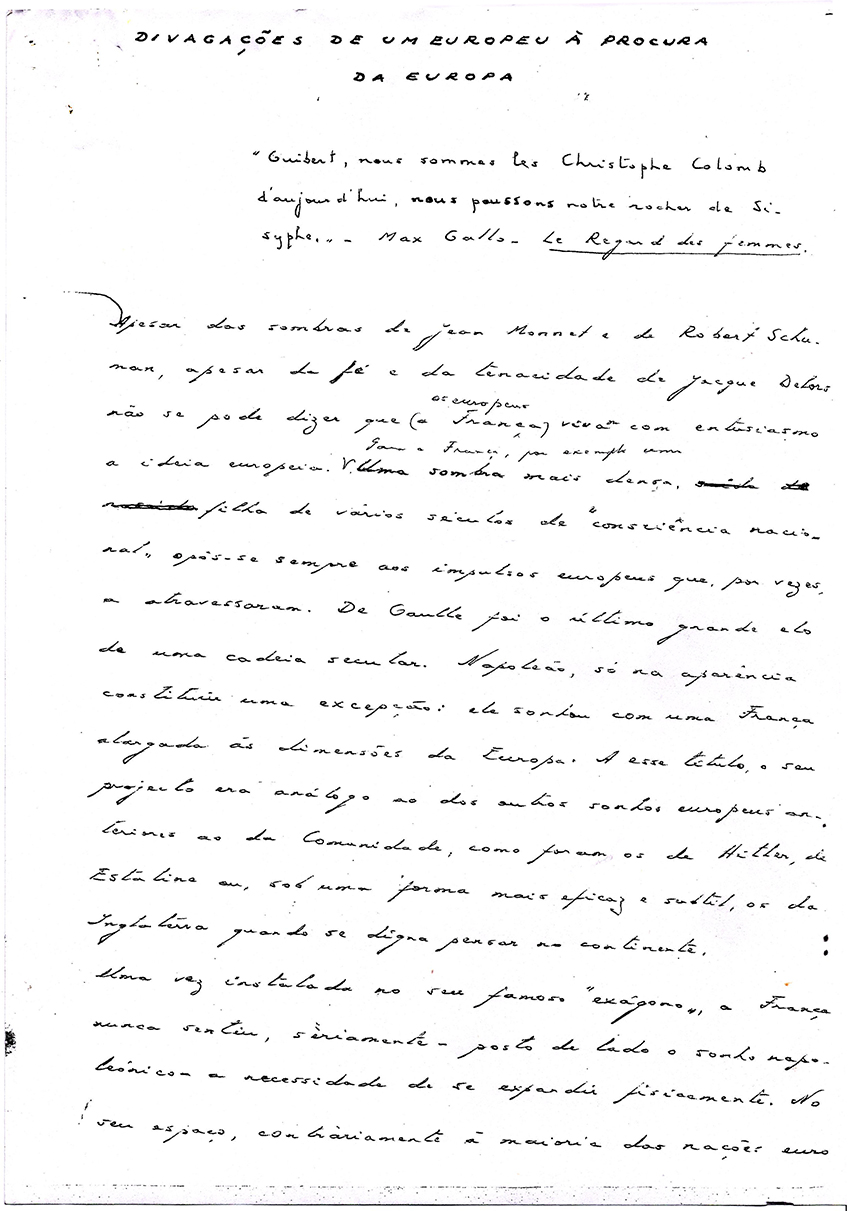 DIVAGAÇÕES DE UM EUROPEU À PROCURA
DA EUROPA
"Guibert, nous sommes les Christophe Colomb
d'aujourd'hui, nous poussons notre rocher de Si-
syphe." - Max Gallo - Le Regard des femmes.
Apesar das sombras de Jean Monnet e de Robert Schu-
man, apesar da fé e da tenacidade de Jacque Delors
os europeus
não se pode dizer que (a França) vivam com entusiasmo
Para a França, por exemplo uma
a ideia europeia. Uma sombra mais densa,
filha de vários séculos de "consciência nacio-
nal" opôs-se sempre aos impulsos europeus que, por vezes,
a atravessaram. De Gaulle foi o último grande elo
de uma cadeia secular. Napoleão, só na aparência
constitui uma excepção: ele sonhou com uma França
alargada às dimensões da Europa. A esse título, o seu
projecto era análogo ao dos outros sonhos europeus an-
teriores ao da Comunidade, como foram os de Hitler, de
Estaline ou, sob uma forma mais eficaz e subtil, os da
Inglaterra quando se digna pensar no continente.
Uma vez instalada no seu famoso "exágono", a França
nunca sentiu, sèriamente - posto de lado o sonho napo-
leónico - a necessidade de se expandir fisicamente. No
seu espaço, contràriamente à maioria das nações euro